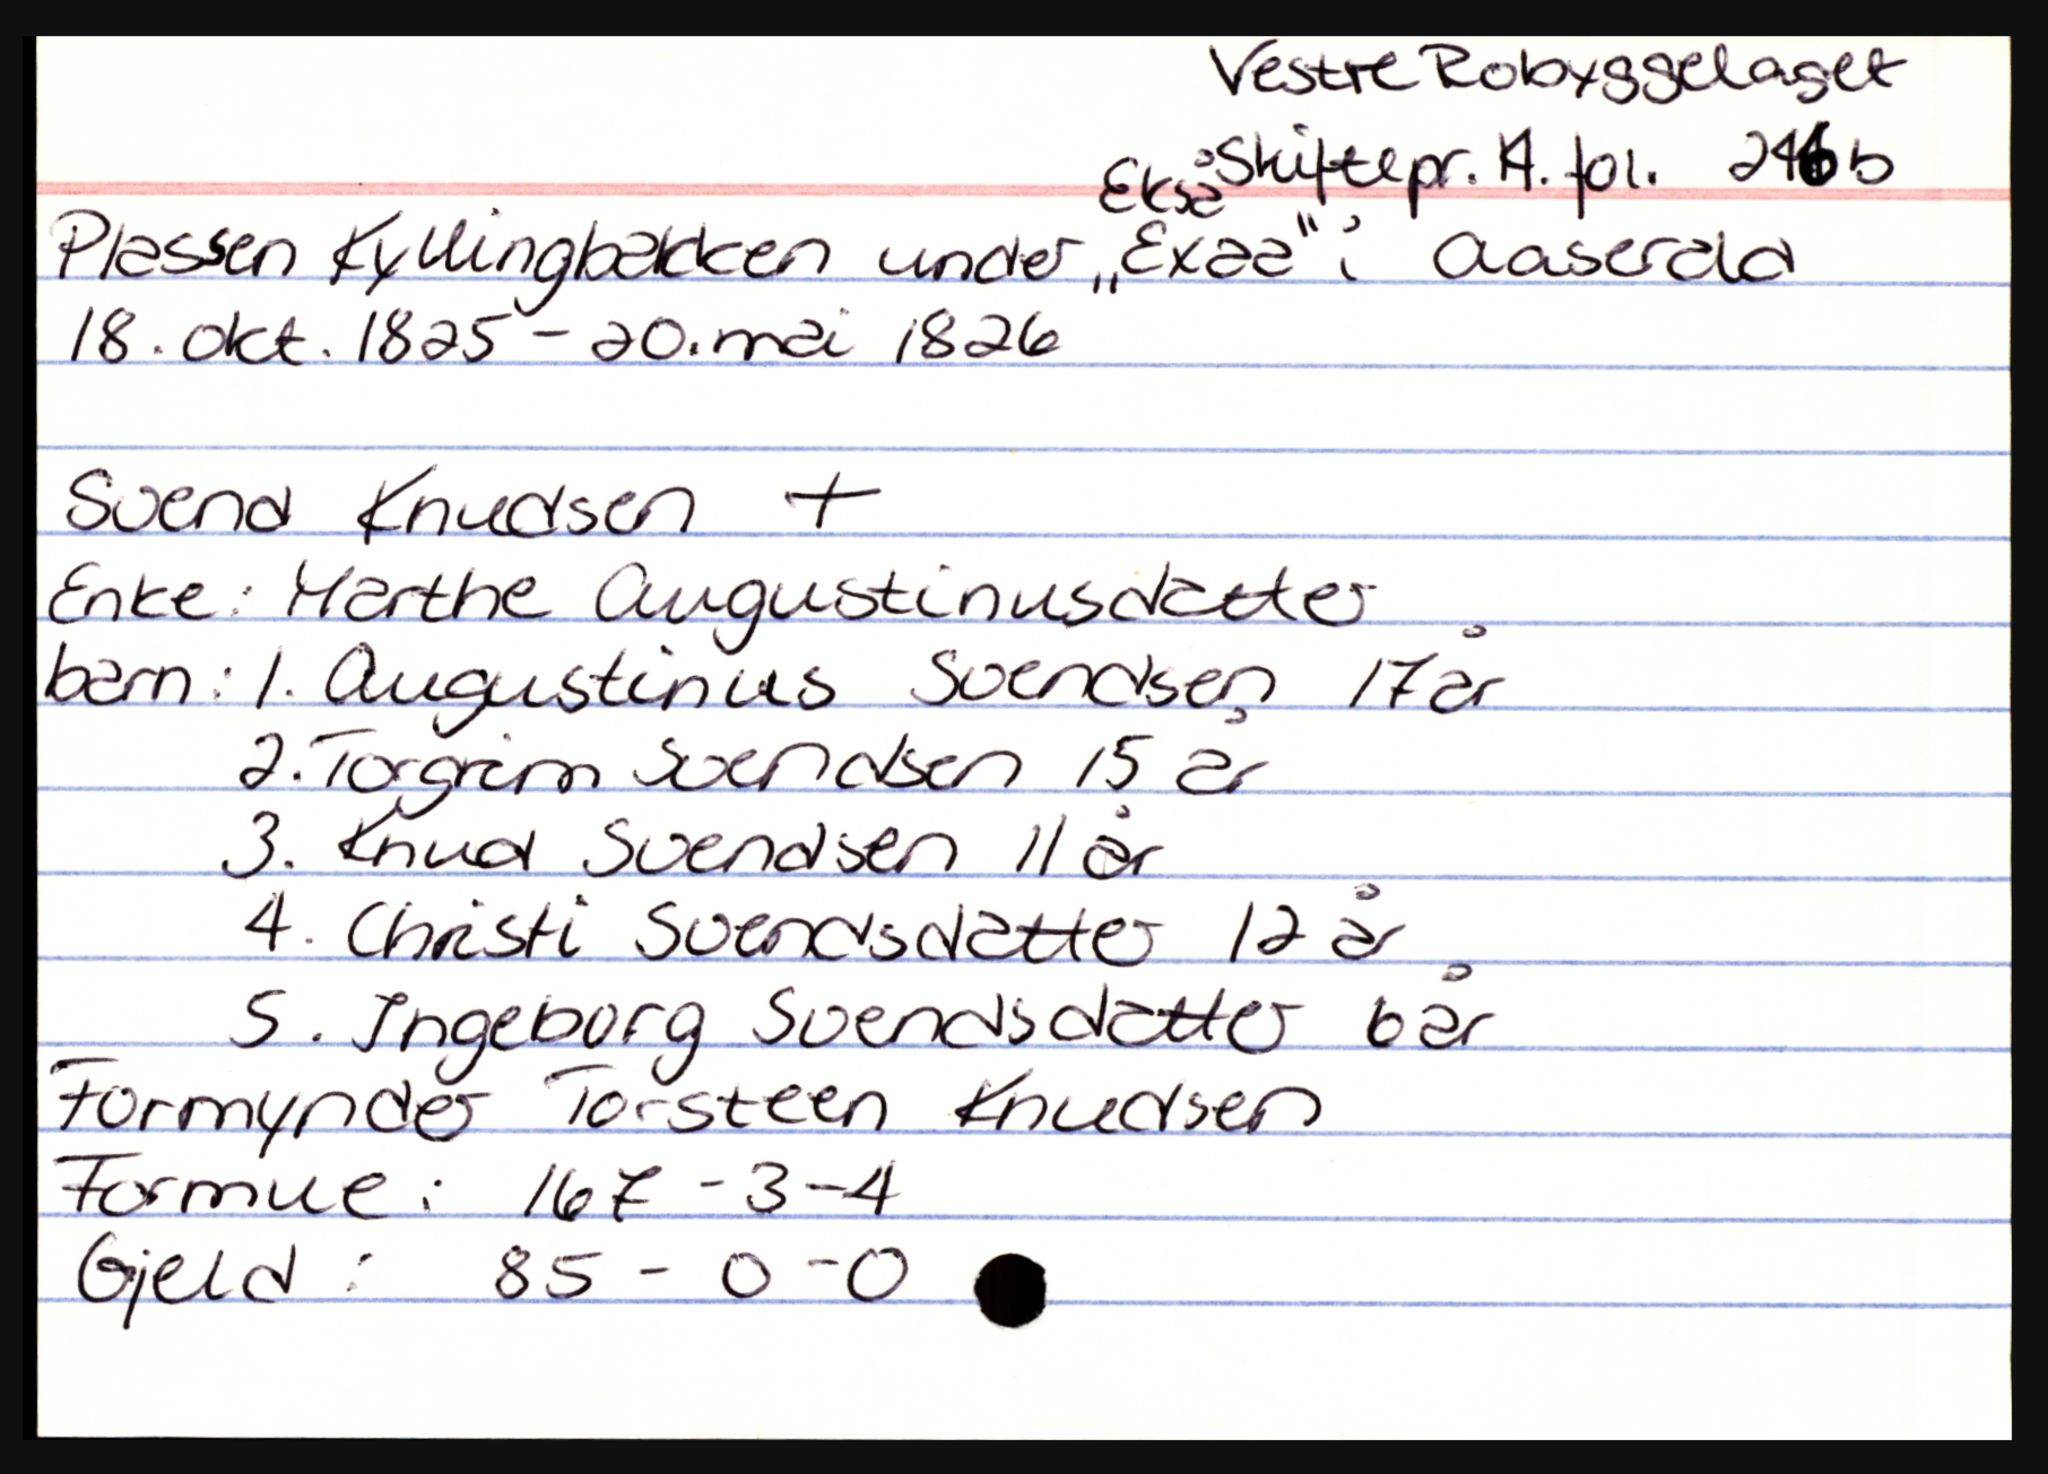 Vestre Robyggelaget
Skiftepr. A. fol. 246b
Ekså
Plassen Kyllingbakken under „Exaa" i Aaserald
18. okt. 1825 - 20. mai 1826
Svend Knudsen +
Enke: Marthe Augustinusdatter
barn: 1. Augustinus Svendsen 17 år
2. Torgrim Svendsen 15 år
3. Knud Svendsen 11 år
4. Christi Svendsdatter 12 år
5. Ingeborg Svendsdatter 6 år
Formynder Torsteen Knudsen
Formue: 167 - 3 - 4
Gjeld: 85 - 0 - 0